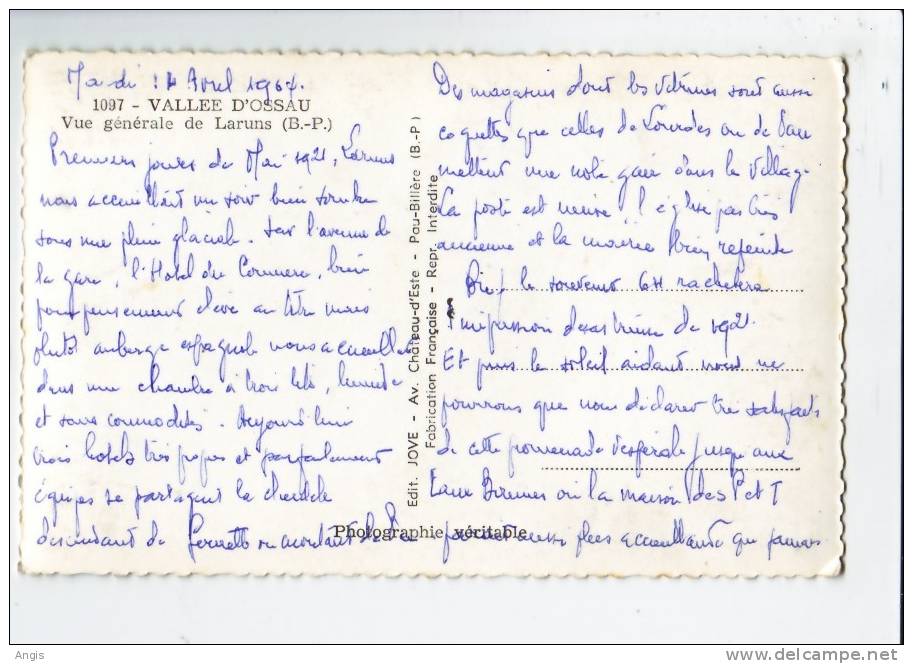 Mardi 14 Avril 1964.
1097 - VALLEE D'OSSAU
Vue générale de Laruns (B.-P.)
Premiers jours de Mai 1921, Laruns
nous accueillait un soir bien sombre
sous une pluie glaciale. Sur l'avenue de
la gare, l'Hotel du Commerce, bien
pompeusement élevé au titre mais
plutôt auberge espagnole nous accueillait
dans une chambre à trois lits, humide
et sans commodités. Aujourd'hui
trois hotels très propres et parfaitement
équipés se partagent la clientèle
descendant de Gourette ou montant de
Edit. JOVE - Av. Château-d'Este - Pau-Billère (B.-P)
Fabrication Française - Repr. Interdite
Photographie véritable
Des magasins dont les vitrines sont aussi
coquettes que celles de Lourdes ou de Pau
mettent une note gaie dans le village.
La poste est neuve, l'église pas très
ancienne et la mairie bien refaite
Bref le souvenir 64 rachètera
l'impression désastreuse de 1921.
Et puis le soleil aidant nous ne
pourrons que nous déclarer très satisfaits
de cette promenade vespérale jusqu'aux
Eaux Bonnes où la maison des P et T
parait aussi plus accueillante que jamais
Angis
www.delcampe.net